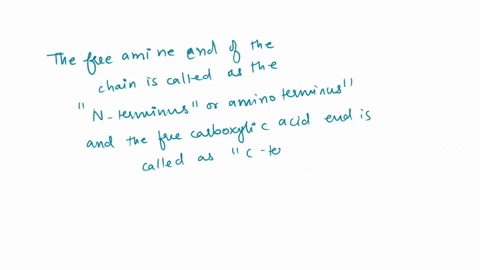 The free amine end of the
chain is called as the
"N-terminus" or amino terminus"
and the free carboxylic acid end is
called as "C-te